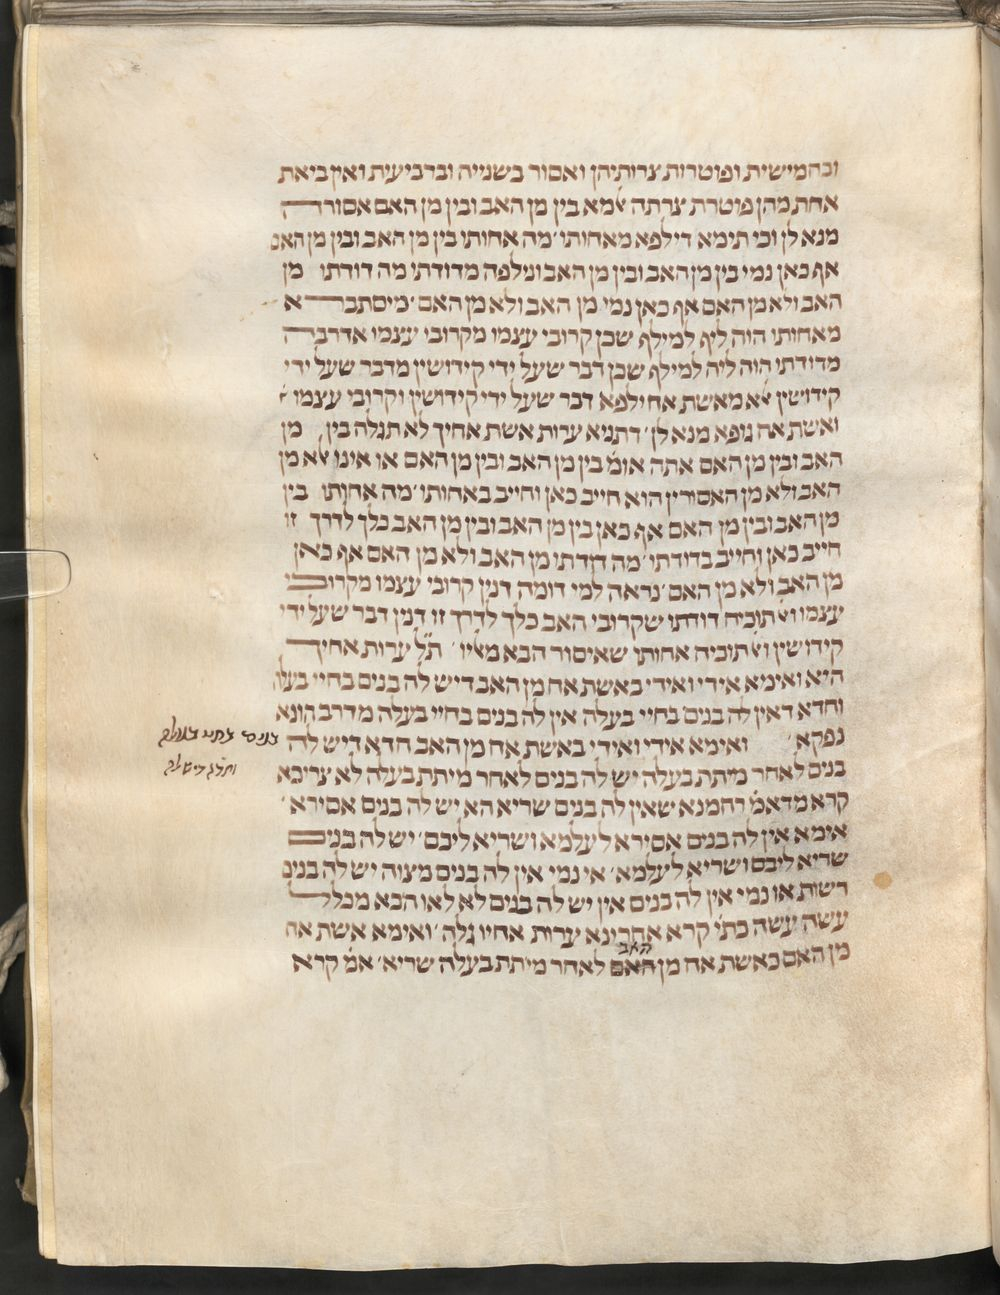 ובחמישית ופוטרות צרותיהן ואסור בשנייה וברביעית ואין ביאת
אחת מהן פוטרת צרתה אלמא בין מן האב ובין מן האם אסורה
מנא לן וכי תימא דילפא מאחותו׳ מה אחותו בין מן האב ובין מן האם
אף כאן נמי בין מן האב ובין מן האב ונילפה מדודתו מה דודתו מן
האב ולא מן האם אף כאן נמי מן האב ולא מן האם ׳מיסתברא
מאחותו הוה ליף למילף שכן קרובי עצמו מקרובי עצמו אדרבה
מדודתו הוה ליה למילף שכן דבר שעל ידי קידושין מדבר שעל ידי
קידושין אלא מאשת אח ילפא דבר שעל ידי קידושין וקרובי עצמו׳
ואשת אח גופא מנא לן׳ דתניא ערות אשת אחיך לא תגלה בין מן
האב ובין מן האם אתה אומ׳ בין מן האב ובין מן האם או אינו אלא מן
האב ולא מן האם ודין הוא חייב כאן וחייב באחותו׳ מה אחותו בין
מן האב ובין מן האם אף כאן בין מן האב ובין מן האב כלך לדרך זו
חייב כאן וחייב בדודתו׳ מה דודתו מן האב ולא מן האם אף כאן
מן האב ולא מן האם ׳נראה למי דומה דנין קרובי עצמו מקרובי
עצמו ואל תוכיח דודתו שקרובי האב כלך לדרך זו דנין דבר שעל ידי
קידושין ואל תוכיח אחותו שאיסור הבא מאליו׳ ת״ל ערות אחיך
היא ואימא אידי ואידי באשת אח מן האב דיש לה בנים בחיי בעלה
וחדא דאין לה בנים בחיי בעלה אין לה בנים בחיי בעלה מדרב הונא
נפקא׳ ואימא אידי ואידי באשת אח מן האב חדא דיש לה
בנים בחיי בעלה
וחדא דיש לה
בנים לאחר מיתת בעלה יש לה בנים לאחר מיתת בעלה לא צריכא
קרא מדאמ׳ רחמנא שאין לה בנים שריא הא יש לה בנים אסירא׳
אימא אין לה בנים אסירא לעלמא ושריא ליבם׳ יש לה בנים
שריא ליבם ושריא לעלמא׳ אי נמי אין לה בנים מצוה יש לה בנים
רשות או נמי אין לה בנים אין יש לה בנים לא לאו הבא מכלל
עשה עשה כתי׳ קרא אחרינא ערות אחיו גלה׳ ואימא אשת אח
האב
מן האם כאשת אח מן האם לאחר מיתת בעלה שריא׳ אמ׳ קרא